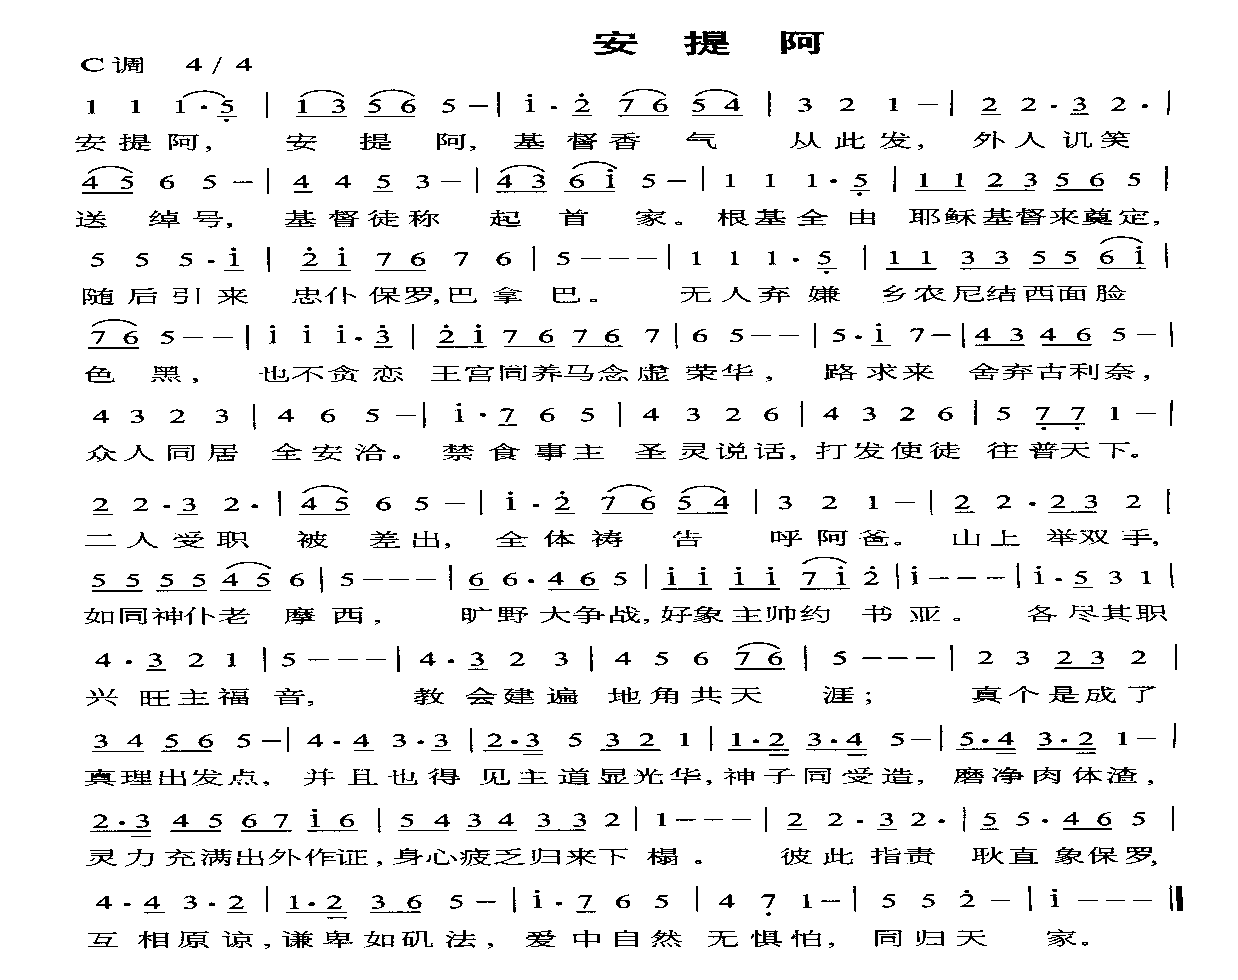 安提阿
C调 4/4
1 1 1·5̣ | 1 3 5 6 5 — | i·2̇ 7 6 5 4 | 3 2 1 — | 2 2·3 2· |
安提阿, 安提阿, 基督香气 从此发, 外人讥笑
4 5 6 5 — | 4 4 5 3 — | 4 3 6 i 5 — | 1 1 1·5̣ | 1 1 2 3 5 6 5 |
送绰号, 基督徒称 起首家。根基全由 耶稣基督来奠定,
5 5 5·i | 2̇ i 7 6 7 6 | 5 — — — | 1 1 1·5̣ | 1 1 3 3 5 5 6 i |
随后引来 忠仆保罗,巴拿巴。 无人弃嫌 乡农尼结西面脸
7 6 5 — — | i i i·3̇ | 2̇ i 7 6 7 6 7 | 6 5 — — | 5·i 7 — | 4 3 4 6 5 — |
色黑, 也不贪恋 王宫同养马念虚荣华, 路求来 舍弃古利奈,
4 3 2 3 | 4 6 5 — | i·7 6 5 | 4 3 2 6 | 4 3 2 6 | 5 7̣ 7̣ 1 — |
众人同居 全安洽。禁食事主 圣灵说话,打发使徒 往普天下。
2 2·3 2· | 4 5 6 5 — | i·2̇ 7 6 5 4 | 3 2 1 — | 2 2·2 3 2 |
二人受职 被差出, 全体祷告 呼阿爸。山上举双手,
5 5 5 5 4 5 6 | 5 — — — | 6 6·4 6 5 | i i i i 7 i 2̇ | i — — — | i·5 3 1 |
如同神仆老摩西, 旷野大争战,好象主帅约书亚。 各尽其职
4·3 2 1 | 5 — — — | 4·3 2 3 | 4 5 6 7 6 | 5 — — — | 2 3 2 3 2 |
兴旺主福音, 教会建遍 地角共天涯; 真个是成了
3 4 5 6 5 — | 4·4 3·3 | 2·3 5 3 2 1 | 1·2 3·4 5 — | 5·4 3·2 1 — |
真理出发点, 并且也得 见主道显光华,神子同受造, 磨净肉体渣,
2·3 4 5 6 7 i 6 | 5 4 3 4 3 3 2 | 1 — — — | 2 2·3 2· | 5 5·4 6 5 |
灵力充满出外作证,身心疲乏归来下榻。 彼此指责 耿直象保罗,
4·4 3·2 | 1·2 3 6 5 — | i·7 6 5 | 4 7̣ 1 — — | 5 5 2̇ — | i — — — ‖
互相原谅,谦卑如矶法, 爱中自然 无惧怕, 同归天家。